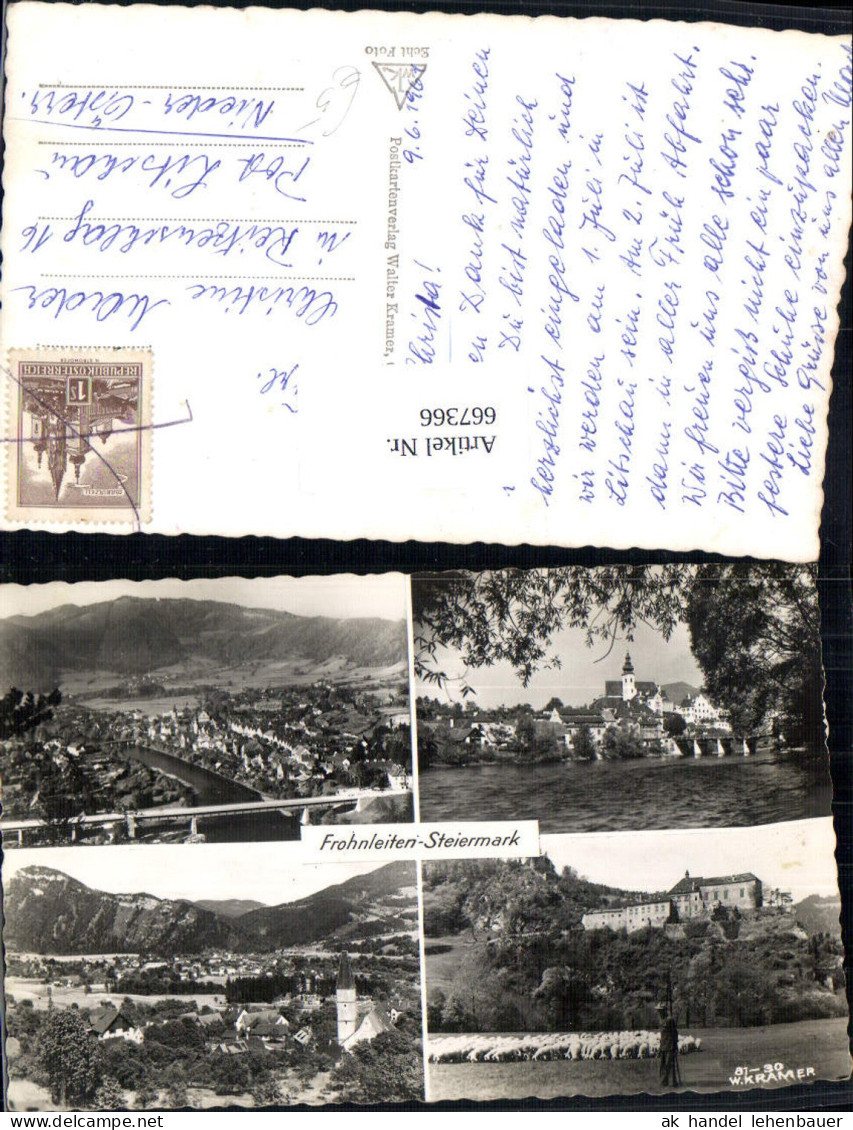 9.6.1961
Christa!
en Dank für Deinen
Du bist natürlich
herzlichst eingeladen und
wir werden am 1. Juli in
Litschau sein. Am 2. Juli ist
dann in aller Früh Abfahrt.
Wir freuen uns alle schon sehr.
Bitte vergiß nicht ein paar
festere Schuhe einzupacken.
Liebe Grüße von uns allen
Echt Foto
wk
Postkartenverlag Walter Kramer,
65
Artikel Nr.
667366
REPUBLIK ÖSTERREICH
1S
MARIAZELL
Frl.
Christine
in Reitzenschlag 16
Post Litschau
Nieder-Österr.
Frohnleiten-Steiermark
81-30
W.KRAMER
ak handel lehenbauer